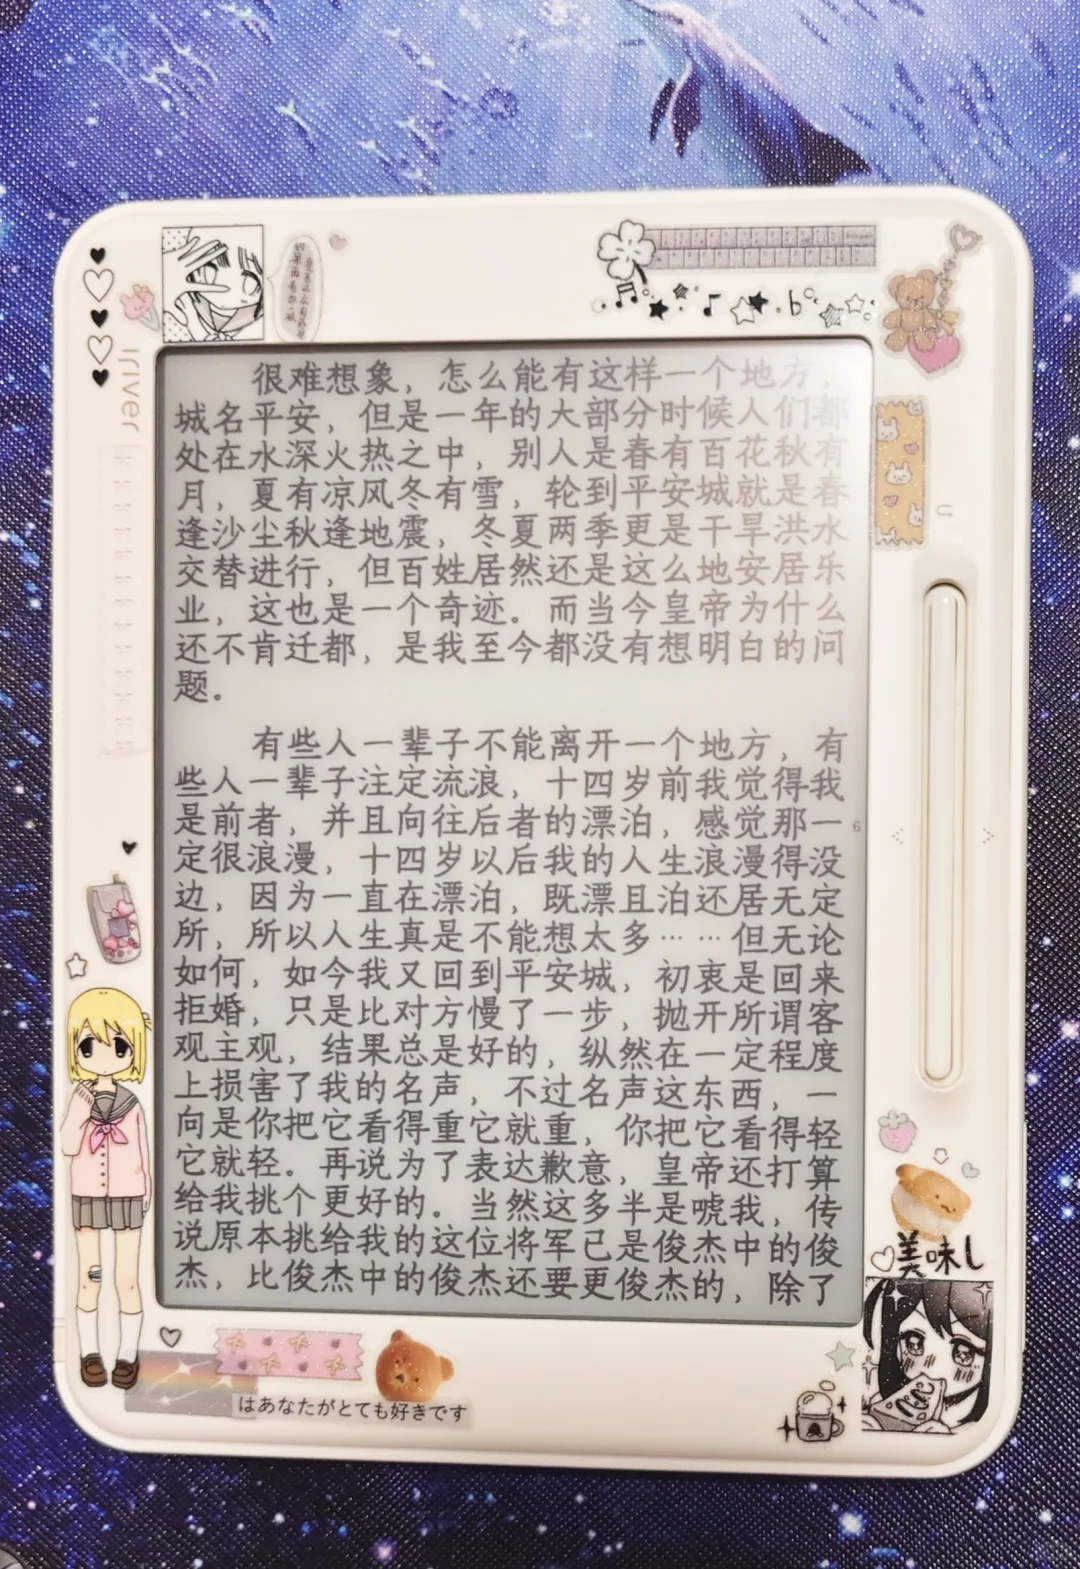 iriver
很难想象，怎么能有这样一个地方，
城名平安，但是一年的大部分时候人们都
处在水深火热之中，别人是春有百花秋有
月，夏有凉风冬有雪，轮到平安城就是春
逢沙尘秋逢地震，冬夏两季更是干旱洪水
交替进行，但百姓居然还是这么地安居乐
业，这也是一个奇迹。而当今皇帝为什么
还不肯迁都，是我至今都没有想明白的问
题。
有些人一辈子不能离开一个地方，有
些人一辈子注定流浪，十四岁前我觉得我
是前者，并且向往后者的漂泊，感觉那一
定很浪漫，十四岁以后我的人生浪漫得没
边，因为一直在漂泊，既漂且泊还居无定
所，所以人生真是不能想太多……但无论
如何，如今我又回到平安城，初衷是回来
拒婚，只是比对方慢了一步，抛开所谓客
观主观，结果总是好的，纵然在一定程度
上损害了我的名声，不过名声这东西，一
向是你把它看得重它就重，你把它看得轻
它就轻。再说为了表达歉意，皇帝还打算
给我挑个更好的。当然这多半是唬我，传
说原本挑给我的这位将军已是俊杰中的俊
杰，比俊杰中的俊杰还要更俊杰的，除了
6
美味し
はあなたがとても好きです